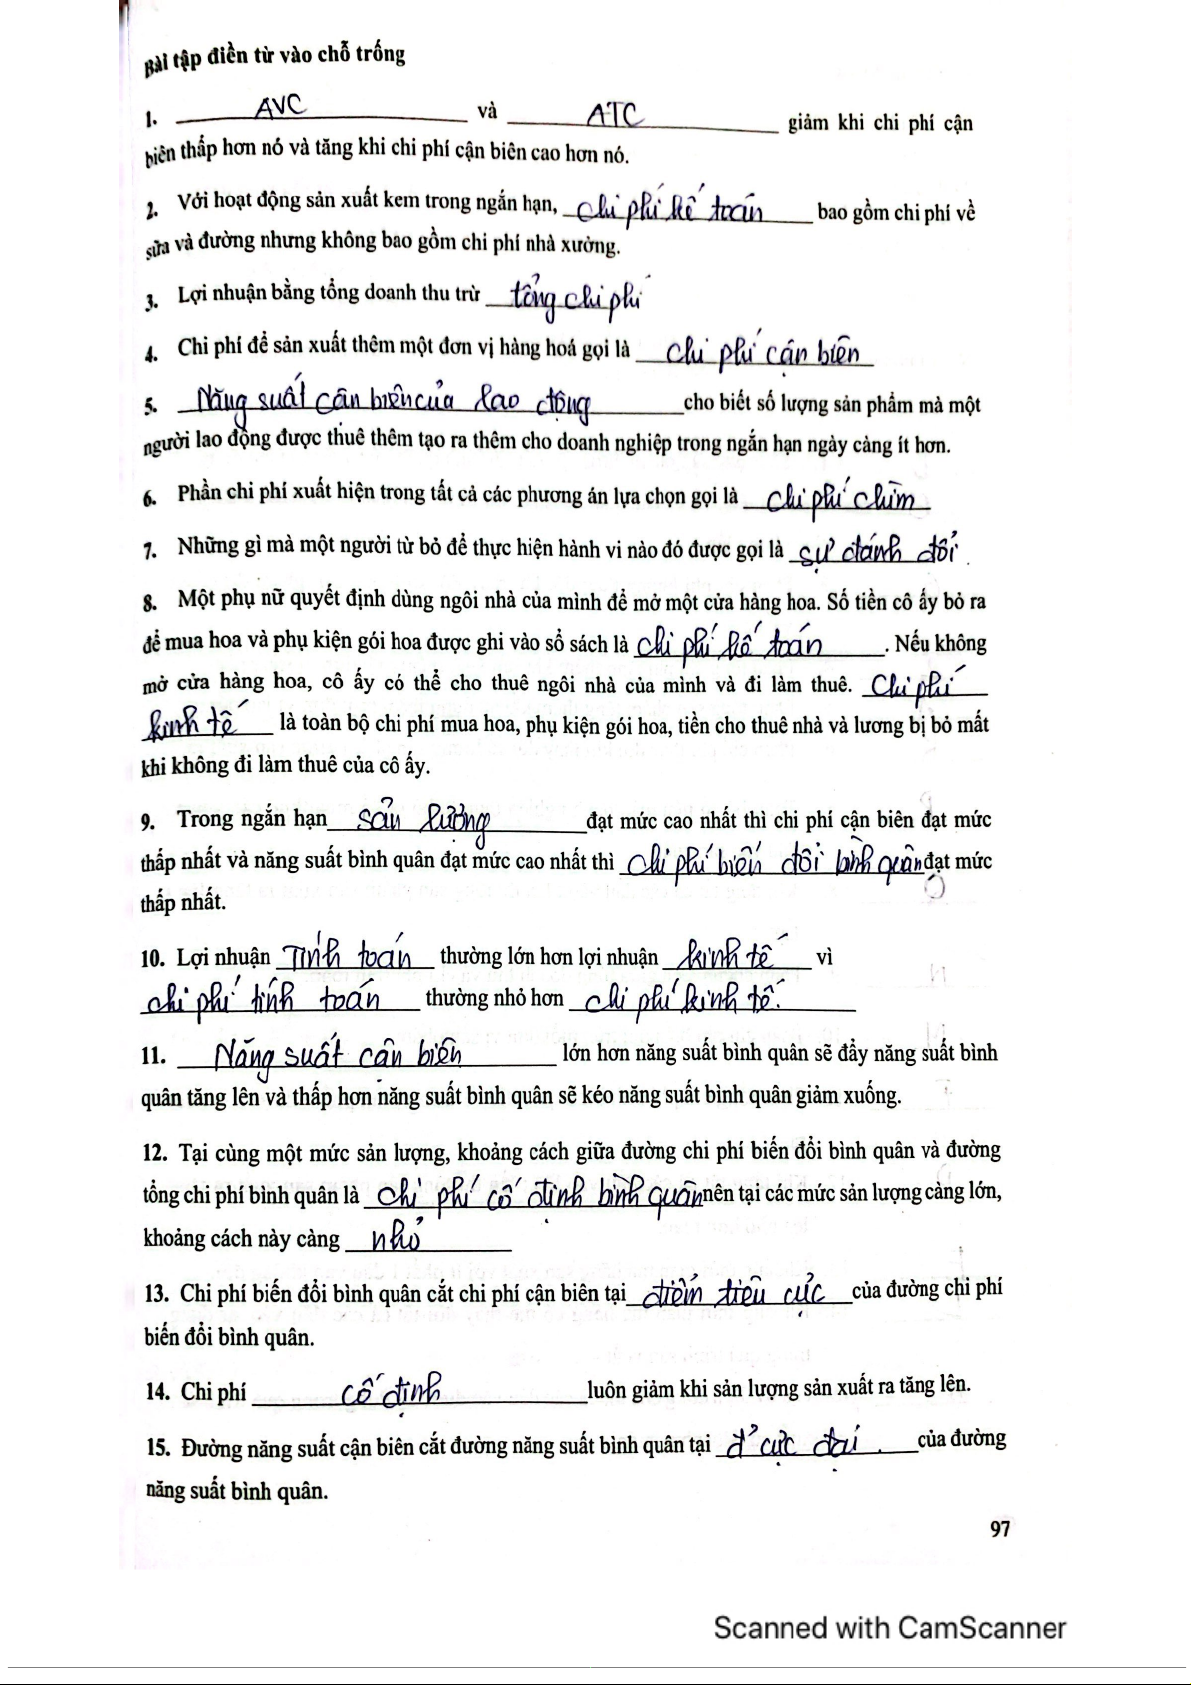 Bài tập điền từ vào chỗ trống
1. AVC và ATC giảm khi chi phí cận
biên thấp hơn nó và tăng khi chi phí cận biên cao hơn nó.
2. Với hoạt động sản xuất kem trong ngắn hạn, chi phí kế toán bao gồm chi phí về
sữa và đường nhưng không bao gồm chi phí nhà xưởng.
3. Lợi nhuận bằng tổng doanh thu trừ tổng chi phí
4. Chi phí để sản xuất thêm một đơn vị hàng hoá gọi là chi phí cận biên
5. Năng suất cận biên của lao động cho biết số lượng sản phẩm mà một
người lao động được thuê thêm tạo ra thêm cho doanh nghiệp trong ngắn hạn ngày càng ít hơn.
6. Phần chi phí xuất hiện trong tất cả các phương án lựa chọn gọi là chi phí chìm
7. Những gì mà một người từ bỏ để thực hiện hành vi nào đó được gọi là sự đánh đổi.
8. Một phụ nữ quyết định dùng ngôi nhà của mình để mở một cửa hàng hoa. Số tiền cô ấy bỏ ra
để mua hoa và phụ kiện gói hoa được ghi vào sổ sách là chi phí kế toán. Nếu không
mở cửa hàng hoa, cô ấy có thể cho thuê ngôi nhà của mình và đi làm thuê. Chi phí
kinh tế là toàn bộ chi phí mua hoa, phụ kiện gói hoa, tiền cho thuê nhà và lương bị bỏ mất
khi không đi làm thuê của cô ấy.
9. Trong ngắn hạn sản lượng đạt mức cao nhất thì chi phí cận biên đạt mức
thấp nhất và năng suất bình quân đạt mức cao nhất thì chi phí biến đổi bình quân đạt mức
thấp nhất.
10. Lợi nhuận Tính toán thường lớn hơn lợi nhuận kinh tế vì
chi phí tính toán thường nhỏ hơn chi phí kinh tế.
11. Năng suất cận biên lớn hơn năng suất bình quân sẽ đẩy năng suất bình
quân tăng lên và thấp hơn năng suất bình quân sẽ kéo năng suất bình quân giảm xuống.
12. Tại cùng một mức sản lượng, khoảng cách giữa đường chi phí biến đổi bình quân và đường
tổng chi phí bình quân là chi phí cố định bình quân nên tại các mức sản lượng càng lớn,
khoảng cách này càng nhỏ
13. Chi phí biến đổi bình quân cắt chi phí cận biên tại điểm tiêu cực của đường chi phí
biến đổi bình quân.
14. Chi phí cố định luôn giảm khi sản lượng sản xuất ra tăng lên.
15. Đường năng suất cận biên cắt đường năng suất bình quân tại đ' cực đại. của đường
năng suất bình quân.
97
Scanned with CamScanner